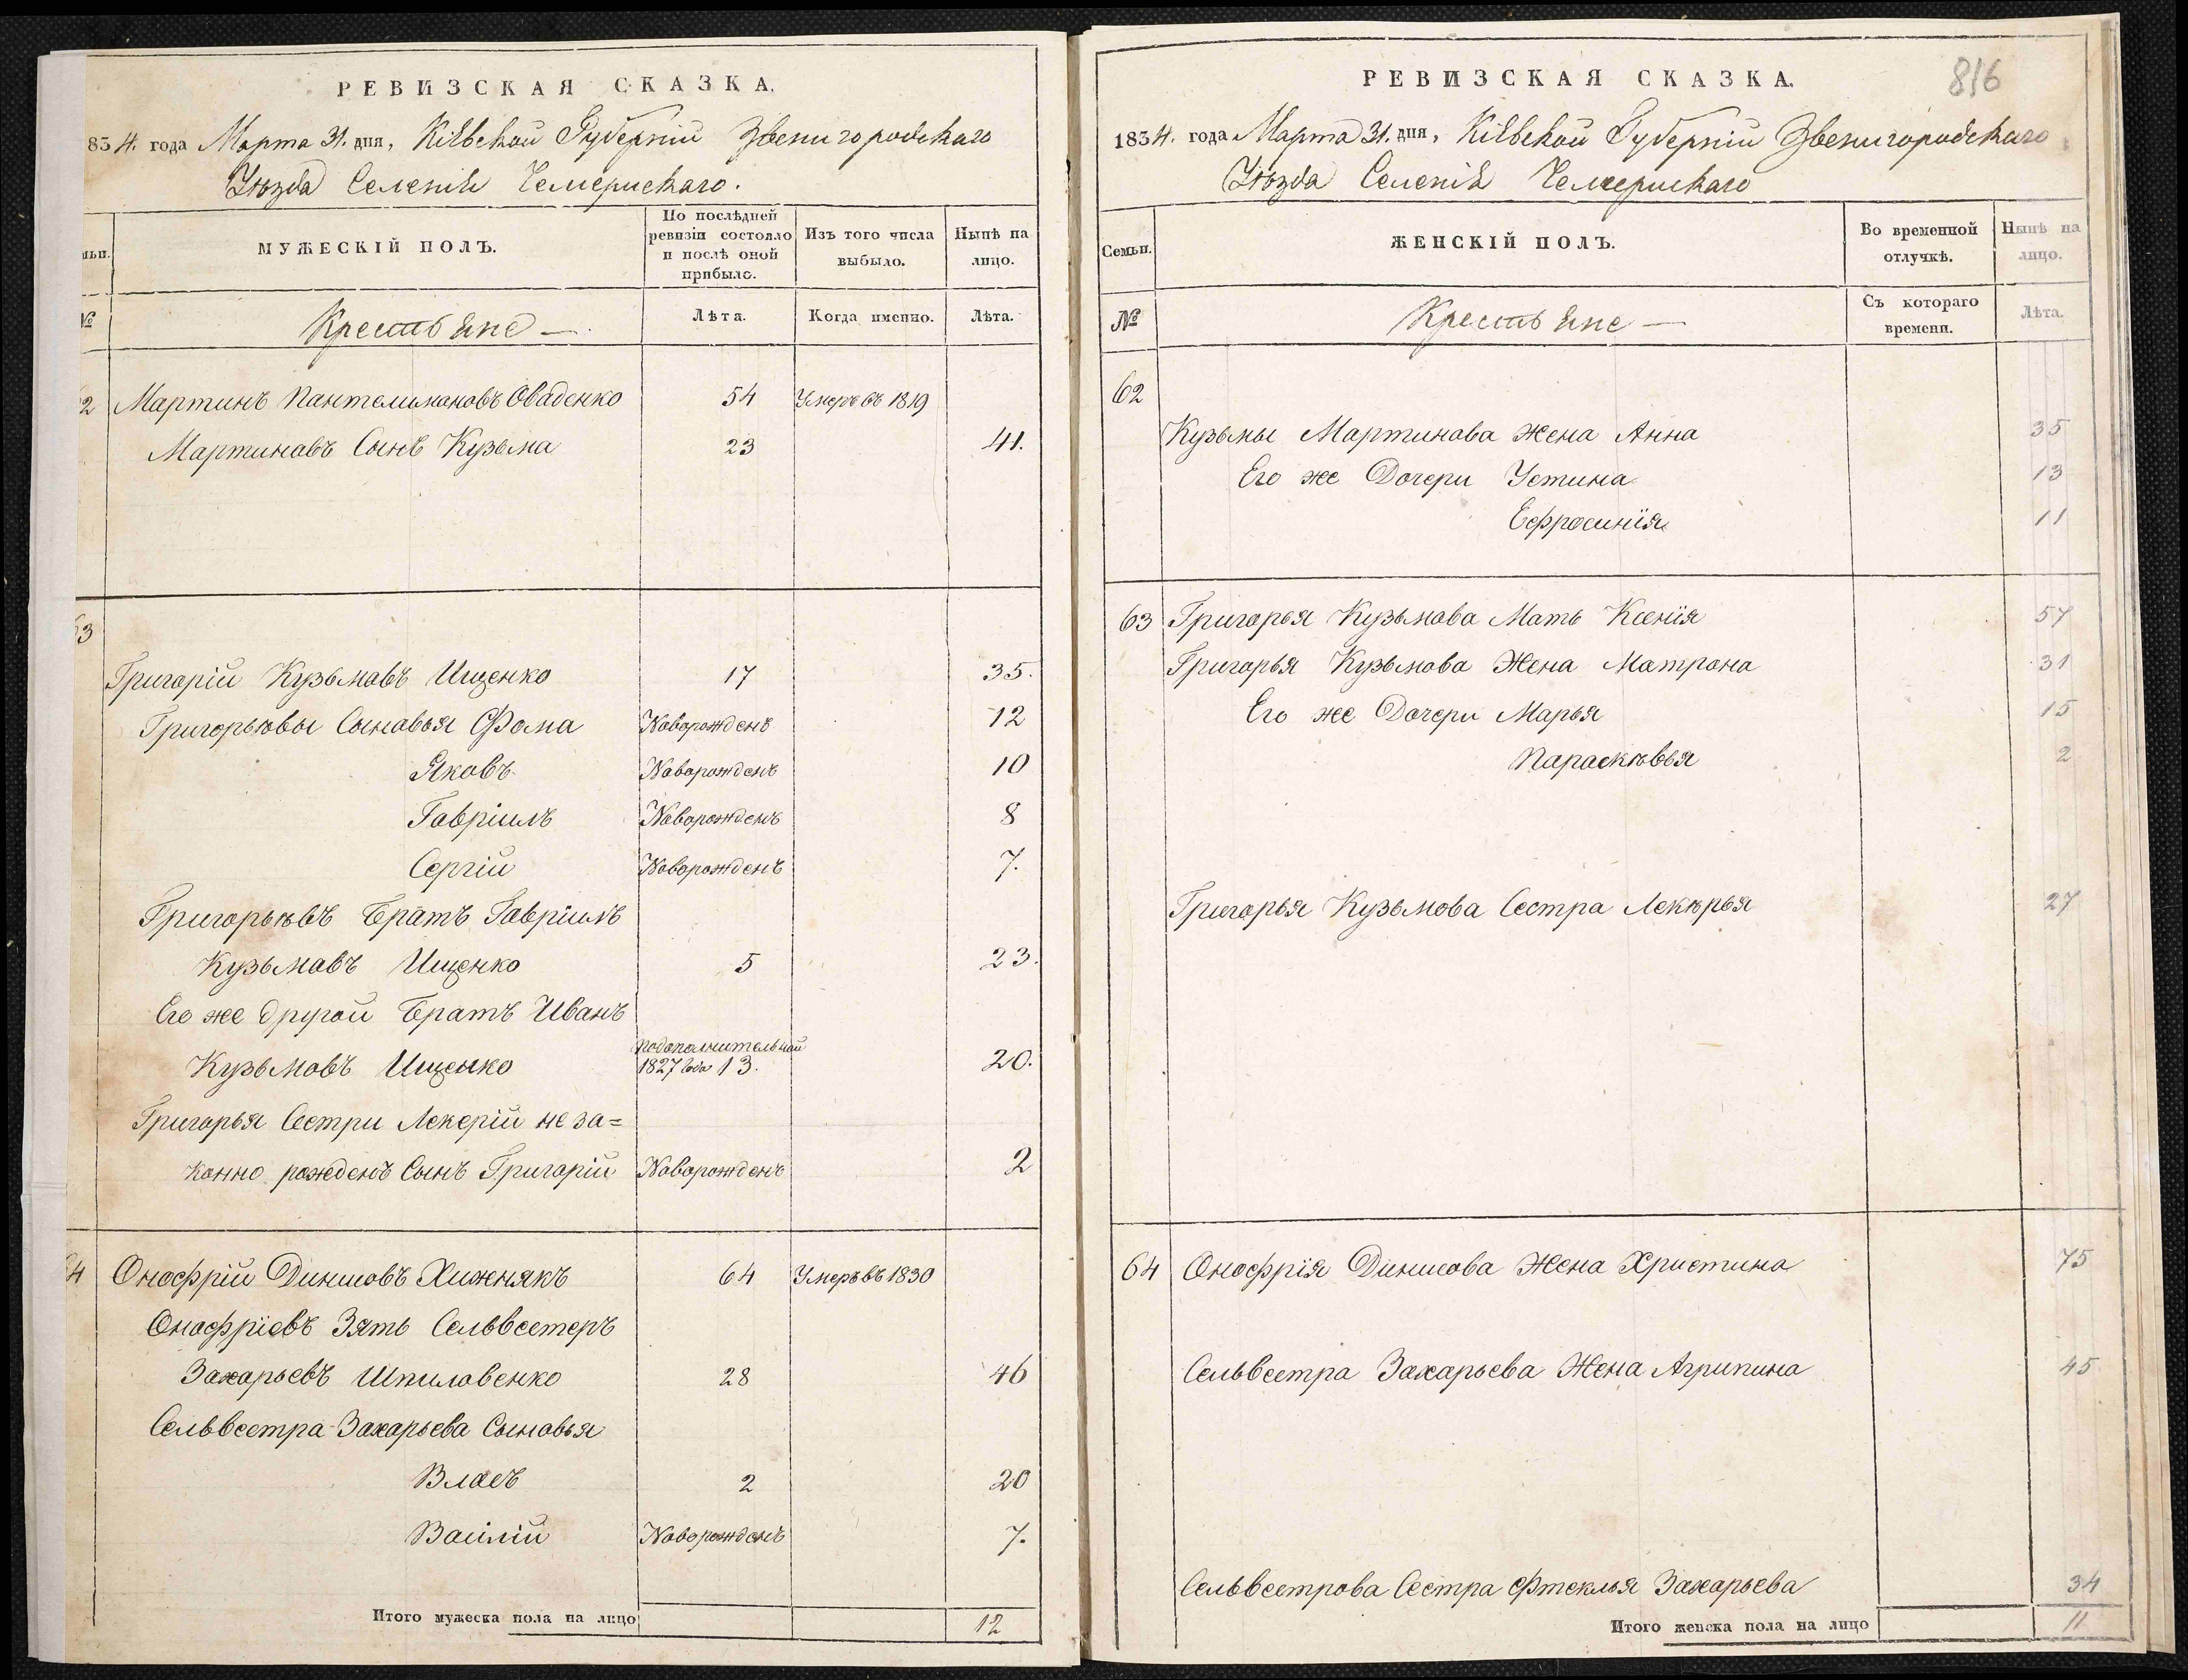 РЕВИЗСКАЯ СКАЗКА.
834. года Марта 31. дня, Кіевской Губерніи Звенигородскаго
Уѣзда Селенія Чемерискаго.
мьи.
МУЖЕСКІЙ ПОЛЪ.
По послѣдней
ревизіи состояло
и послѣ оной
прибыло.
Изъ того числа
выбыло.
Нынѣ на
лицо.
№
Крестьяне —
Лѣта.
Когда именно.
Лѣта.
2 Мартинъ Пантелимоновъ Оваденко 54 Умеръ въ 1819
Мартиновъ Сынъ Кузьма 23 41.
63
Григорій Кузьмовъ Ищенко 17 35.
Григорьювы Сыновья Фома Новорожденъ 12
Яковъ Новорожденъ 10
Гавріилъ Новорожденъ 8
Сергій Новорожденъ 7.
Григорьювъ Братъ Гавріилъ
Кузьмовъ Ищенко 5 23.
Его же другой Братъ Иванъ
Кузьмовъ Ищенко подополнительной 1827 года 13. 20.
Григорья Сестри Лекерій не за=
конно рожденъ Сынъ Григорій Новорожденъ 2
64 Онофрій Динисовъ Хижнякъ 64 Умеръ въ 1830
Онофріевъ Зять Сельвестеръ
Захарьевъ Шпиловенко 28 46
Сельвестра Захарьева Сыновья
Власъ 2 20
Василій Новорожденъ 7.
Итого мужеска пола на лицо 12
816
РЕВИЗСКАЯ СКАЗКА.
1834. года Марта 31. дня, Кіевской Губерніи Звенигородскаго
Уѣзда Селенія Чемерискаго
Семьи.
ЖЕНСКІЙ ПОЛЪ.
Во временной
отлучкѣ.
Нынѣ на
лицо.
№
Крестьяне —
Съ котораго
времени.
Лѣта.
62
Кузьмы Мартинова жена Анна 35
Его же Дочери Устина 13
Ефросинія 11
63 Григорья Кузьмова Мать Ксенія 57
Григорья Кузьмова Жена Матрона 31
Его же Дочери Марья 15
Параскѣвья 2
Григорья Кузьмова Сестра Лекѣрья 27
64 Онофрія Динисова Жена Христина 75
Сельвестра Захарьева Жена Агрипина 45
Сельвестрова Сестра Фтеклья Захарьева 34
Итого женска пола на лицо 11